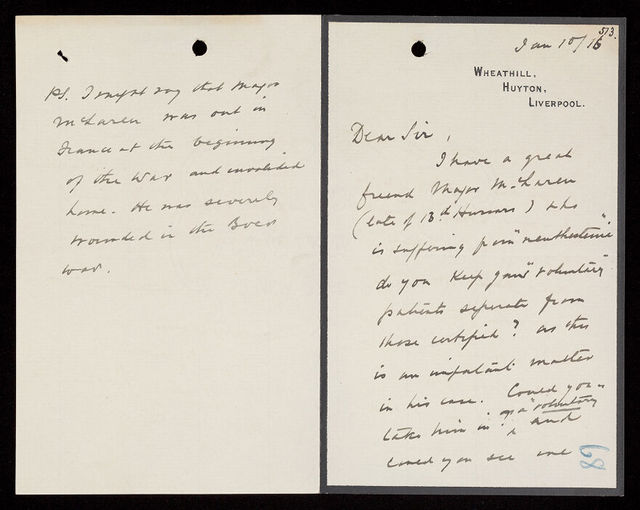 PS. I might say that Major
McLaren was out in
France at the beginning
of the War and invalided
home. He was severely
wounded in the Boer
war.
513.
Jan 10/16
WHEATHILL,
HUYTON,
LIVERPOOL.
Dear Sir,
I have a great
friend Major McLaren
(late of 13th Hussars) who
is suffering from "neurasthenia"
do you keep your "voluntary"
patients seperate from
those certified? as this
is an important matter
in his case. Could you
take him in as a "voluntary"
and
could you see me
68